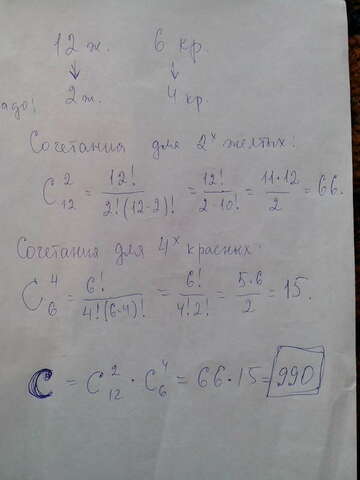 12 ж. 6 кр.
↓ ↓
адо: 2 ж. 4 кр.
Сочетания для 2х желтых:
C₁₂² = 12! / 2!(12-2)! = 12! / 2·10! = 11·12 / 2 = 66.
Сочетания для 4х красных:
C₆⁴ = 6! / 4!(6-4)! = 6! / 4!2! = 5·6 / 2 = 15.
C = C₁₂² · C₆⁴ = 66·15 = 990